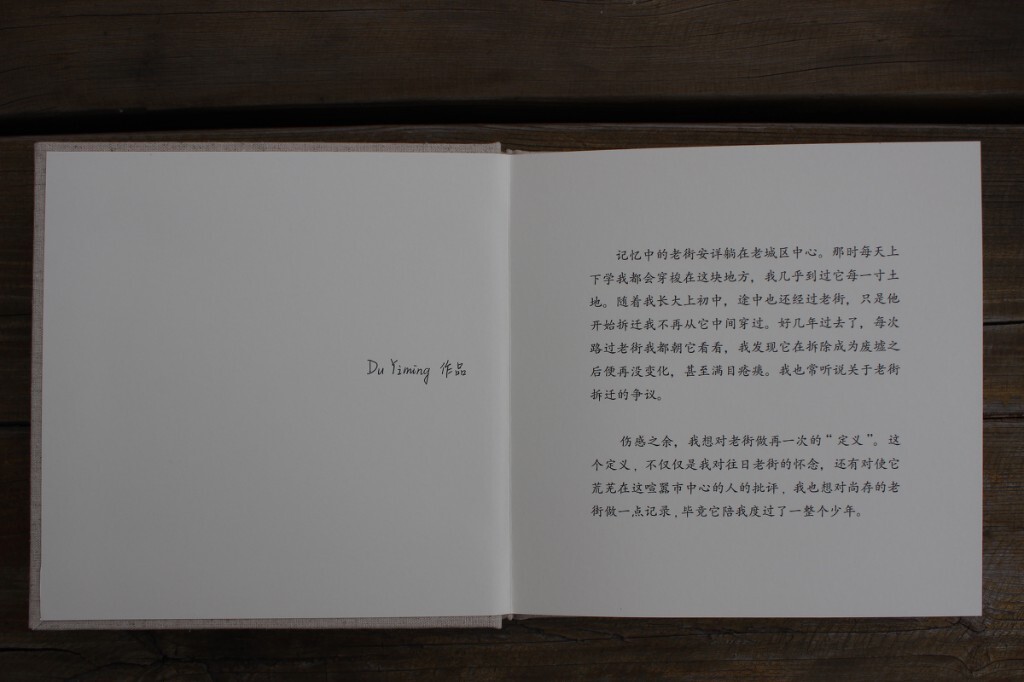 Du Yiming 作品
记忆中的老街安详躺在老城区中心。那时每天上
下学我都会穿梭在这块地方，我几乎到过它每一寸土
地。随着我长大上初中，途中也还经过老街，只是他
开始拆迁我不再从它中间穿过。好几年过去了，每次
路过老街我都朝它看看，我发现它在拆除成为废墟之
后便再没变化，甚至满目疮痍。我也常听说关于老街
拆迁的争议。
伤感之余，我想对老街做再一次的“定义”。这
个定义，不仅仅是我对往日老街的怀念，还有对使它
荒芜在这喧嚣市中心的人的批评，我也想对尚存的老
街做一点记录，毕竟它陪我度过了一整个少年。